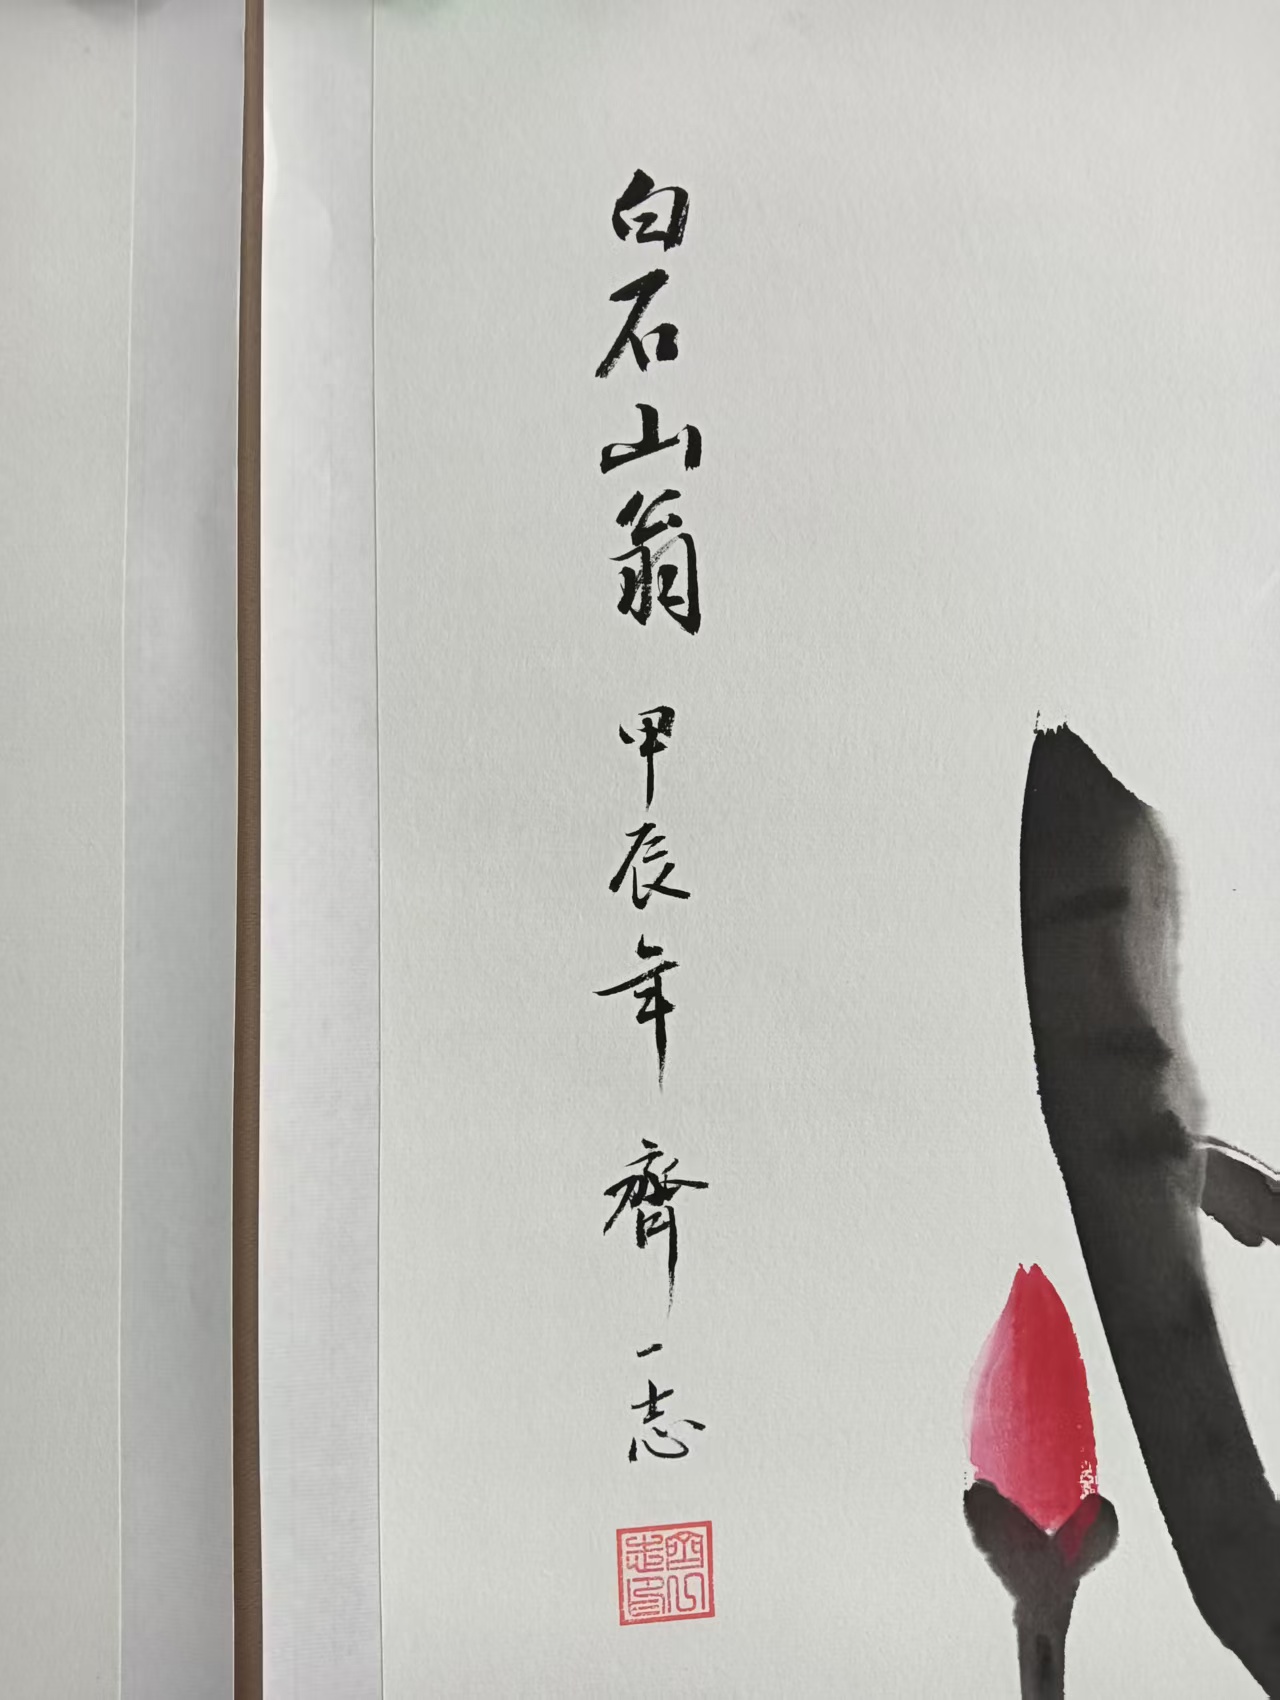 白石山翁 甲辰年 齊一志